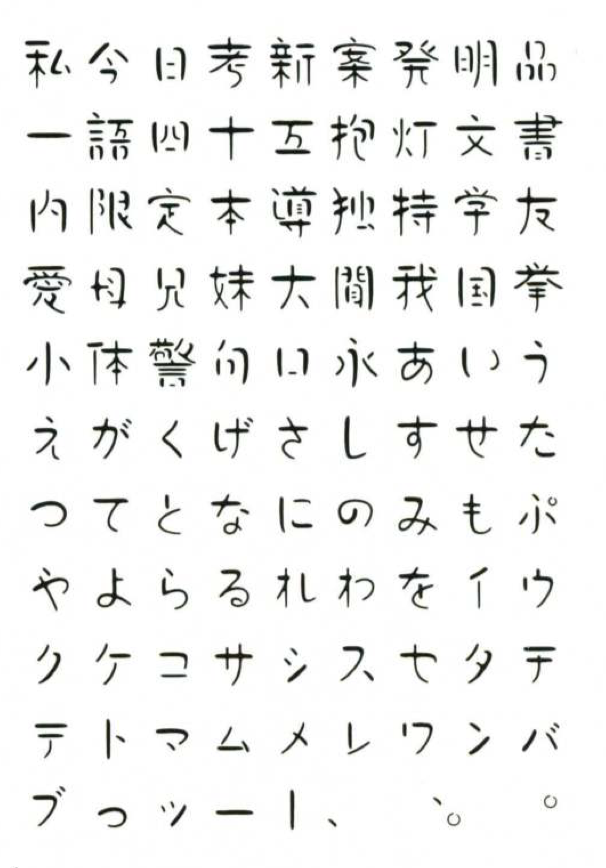 私今日考新案発明品
一語四十五抱灯文書
内限定本導独持学友
愛母兄妹大間我国挙
小体警向口永あいう
えがくげさしすせた
つてとなにのみもぷ
やよらるれわをイウ
クケコサシスセタチ
テトマムメレワンバ
ブっツー｜、　、。　。